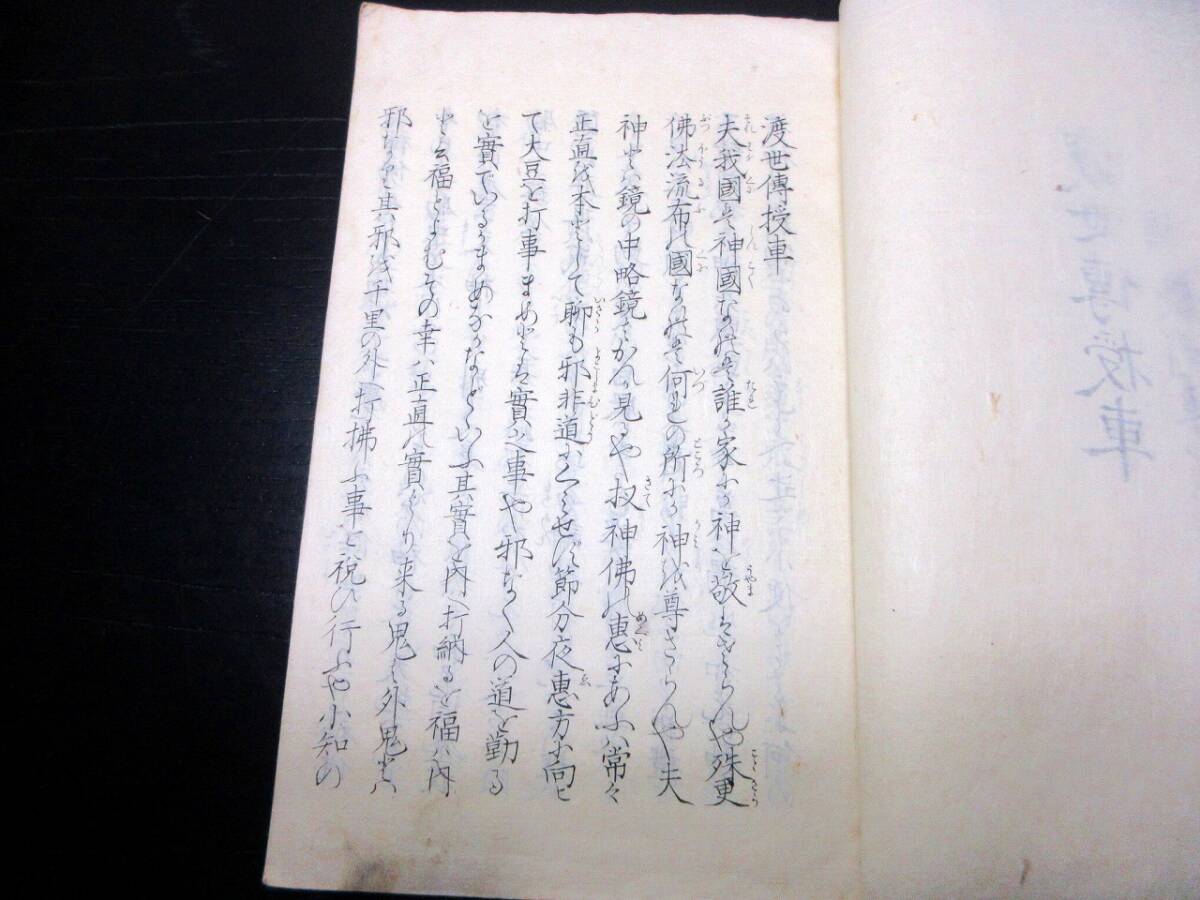 渡世傳授車
夫我國は神國なれば誰が家にか神を敬はざらんや殊更
佛法流布の國なれば何れの所にか神を尊ざらんや夫
神とハ鏡の中略鏡はかんがみるや扨神佛の惠にあふハ常々
正直を本として聊も邪非道にくみせず節分夜惠方に向ヒ
て大豆を打事まめとは實と事や邪なく人の道を勤る
を實でいるかまめなかなどゝいふ其實を内へ打納るを福ハ内
と云福とよむその幸ハ正直の實より来る鬼は外鬼とハ
邪なりと其邪を千里の外へ打拂ふ事を祝ひ行ふや小知の
渡世傳授車